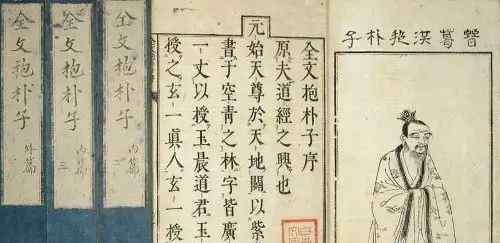 全文抱朴子
外篇
全文抱朴子
内篇
三
全文抱朴子
内篇
全文抱朴子序
原夫道經之興也
元始天尊於天地闢以紫
書于空青之林字皆廣
一丈以授玉晨道君玉
授之玄一眞人玄一授
晉葛洪抱朴子